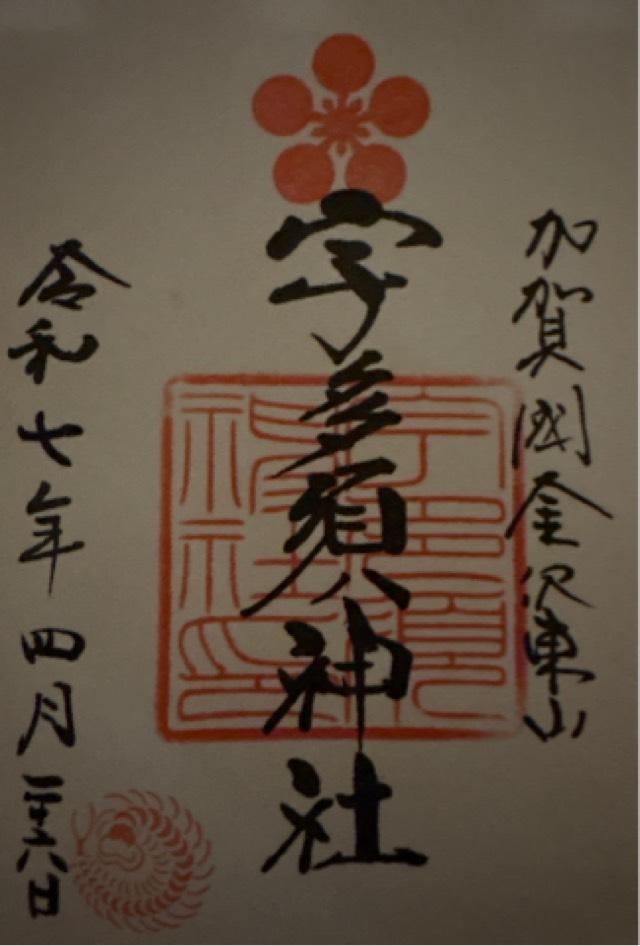 加賀國金沢東山
宇多須神社
令和七年四月二十六日